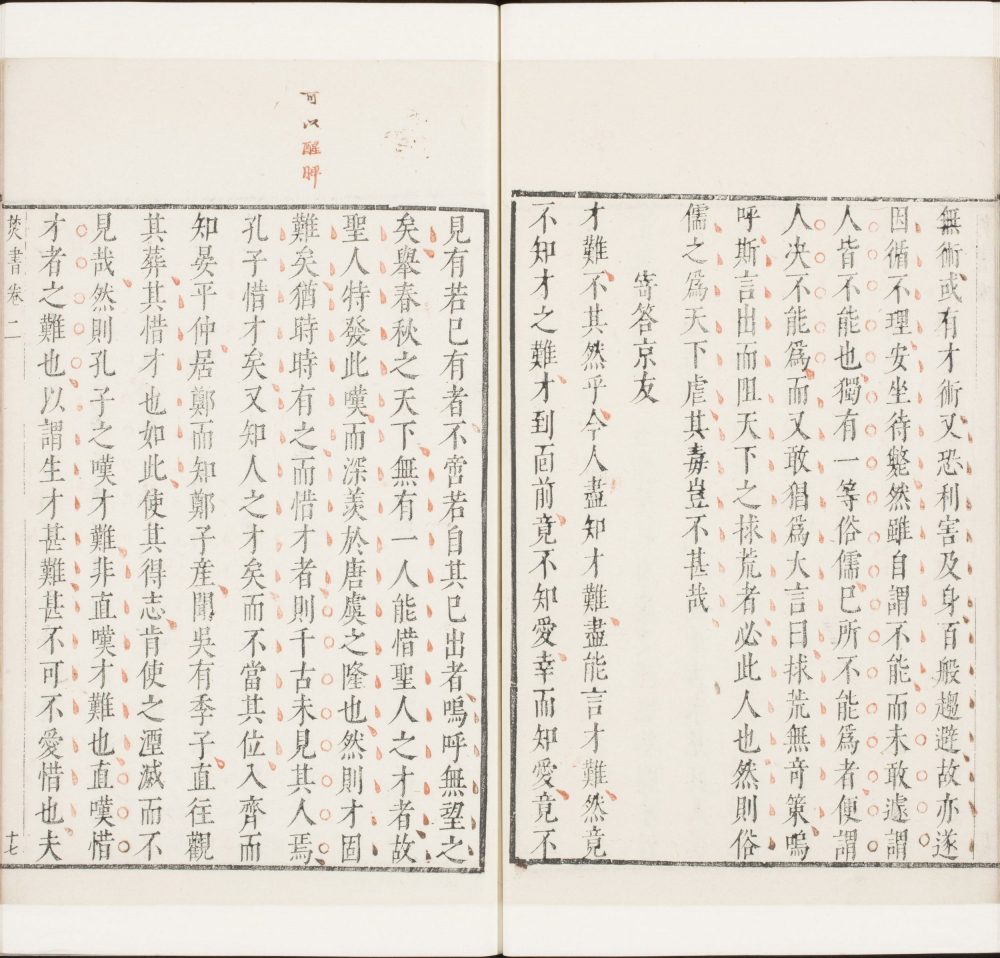 無術或有才術又恐利害及身百般趨避故亦遂
因循不理安坐待斃然雖自謂不能而未敢遽謂
人皆不能也獨有一等俗儒已所不能爲者便謂
人决不能爲而又敢猖爲大言曰捄荒無奇策嗚
呼斯言出而阻天下之捄荒者必此人也然則俗
儒之爲天下虐其毒豈不甚哉
寄答京友
才難不其然乎今人盡知才難盡能言才難然竟
不知才之難才到面前竟不知愛幸而知愛竟不
可以醒脾
見有若已有者不啻若自其已出者嗚呼無望之
矣舉春秋之天下無有一人能惜聖人之才者故
聖人特發此嘆而深羨於唐虞之隆也然則才固
難矣猶時時有之而惜才者則千古未見其人焉
孔子惜才矣又知人之才矣而不當其位入齊而
知晏平仲居鄭而知鄭子產聞吳有季子直往觀
其葬其惜才也如此使其得志肯使之湮滅而不
見哉然則孔子之嘆才難非直嘆才難也直嘆惜
才者之難也以謂生才甚難甚不可不愛惜也夫
焚書卷二
十七